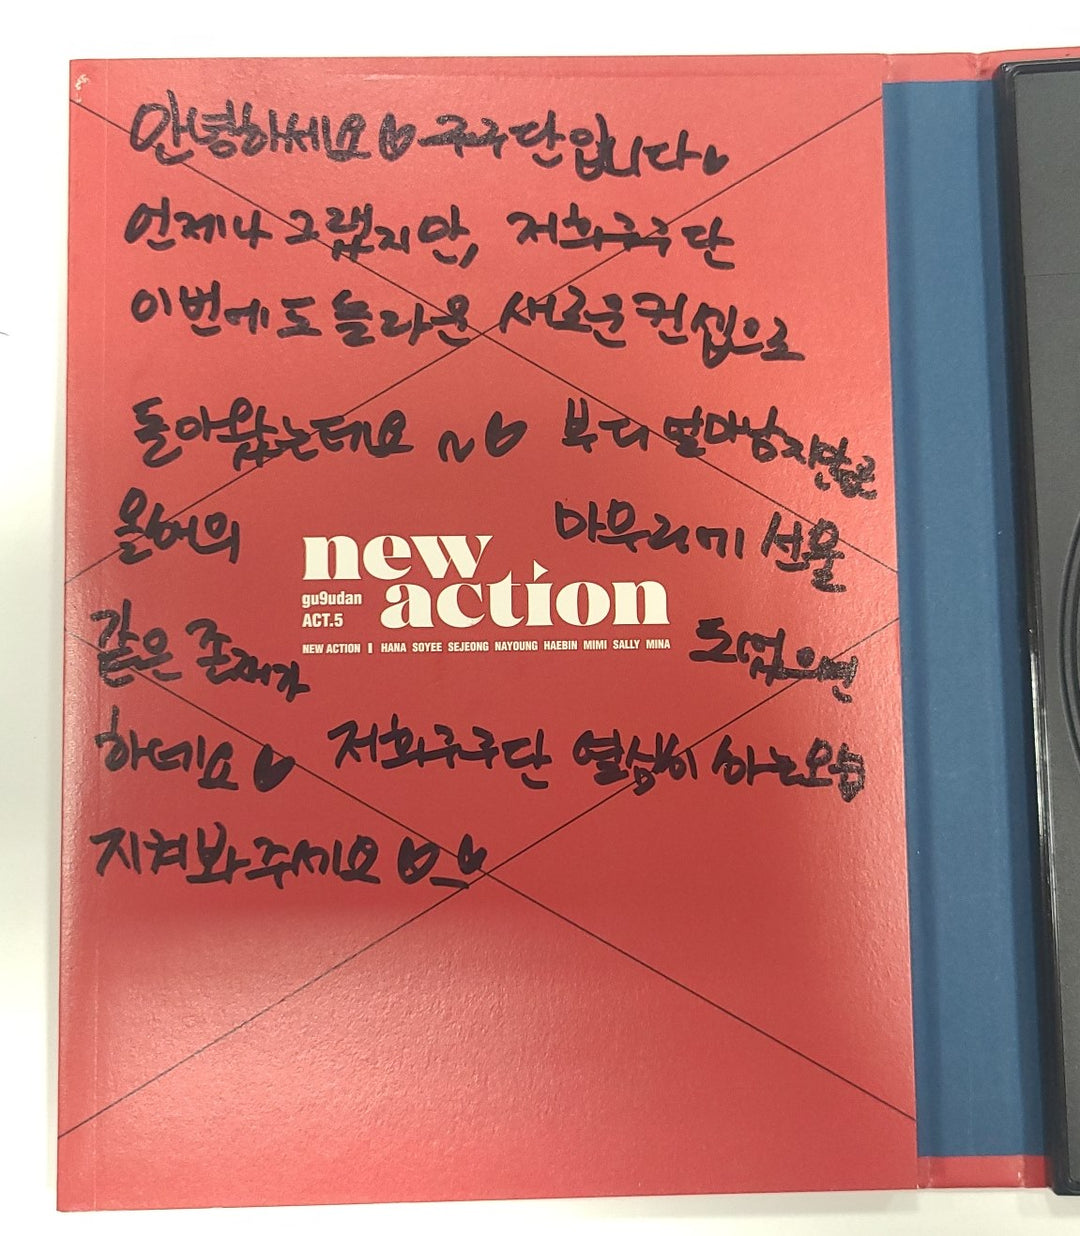 안녕하세요♡ 구구단입니다♡
언제나 그랬지만, 저희구구단
이번에도 놀라운 새로운 컨셉으로
돌아왔는데요 ~♡ 부디 얼마남지않은
올해의 마무리에 선물
new
action
gu9udan
ACT.5
NEW ACTION HANA SOYEE SEJEONG NAYOUNG HAEBIN MIMI SALLY MINA
같은 존재가 도셨으면
하네요♡ 저희구구단 열심히 하는모습
지켜봐주세요 ♡_♡